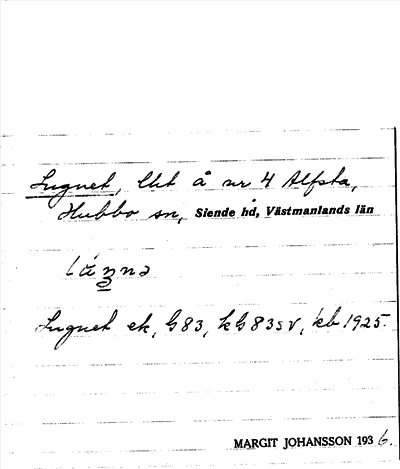 Lugnet, lht å nr 4 Alfsta,
Hubbo sn, Siende hd, Västmanlands län
Lugnet ek, G83, kG83sv, kb 1925.
MARGIT JOHANSSON 1936.